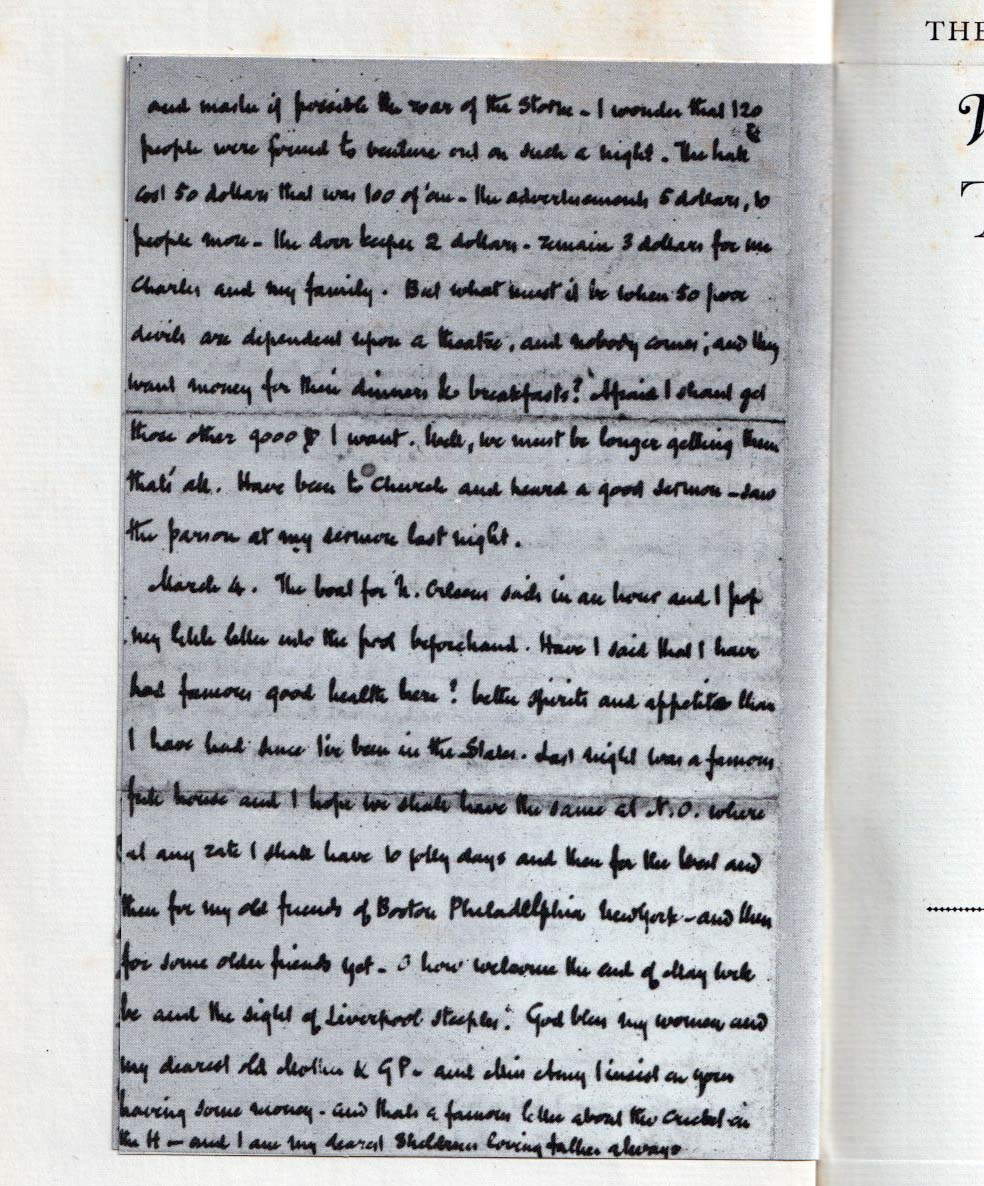 THE
and master if possible the roar of the Storm - I wonder that 120
people were found to venture out on such a night. The hall
cost 50 dollars that was 100 of 'em - the advertisements 5 dollars, 10
people more - the door keeper 2 dollars - remain 3 dollars for me
Charles and my family. But what must it be when 50 poor
devils are dependent upon a theatre, and nobody comes; and they
want money for their dinners & breakfasts? Afraid I shant get
those other 9000 I want. Well, we must be longer getting them
that's all. Have been to Church and heard a good sermon - saw
the parson at my sermon last night.
March 4. The boat for N. Orleans sails in an hour and I pop
my little letter into the post beforehand. Have I said that I have
had famous good health here? better spirits and appetites than
I have had since I've been in the States. Last night was a famous
full house and I hope we shall have the same at N.O. where
at any rate I shall have 10 jolly days and then for the West and
then for my old friends of Boston Philadelphia New York - and then
for some older friends yet - O how welcome the end of May will
be and the sight of Liverpool steeples! God bless my women and
my dearest old Mother & GP - and Miss Amy I insist on your
having some money - and thats a famous letter about the cricket in
the H - and I am my dearest Childrens loving father always